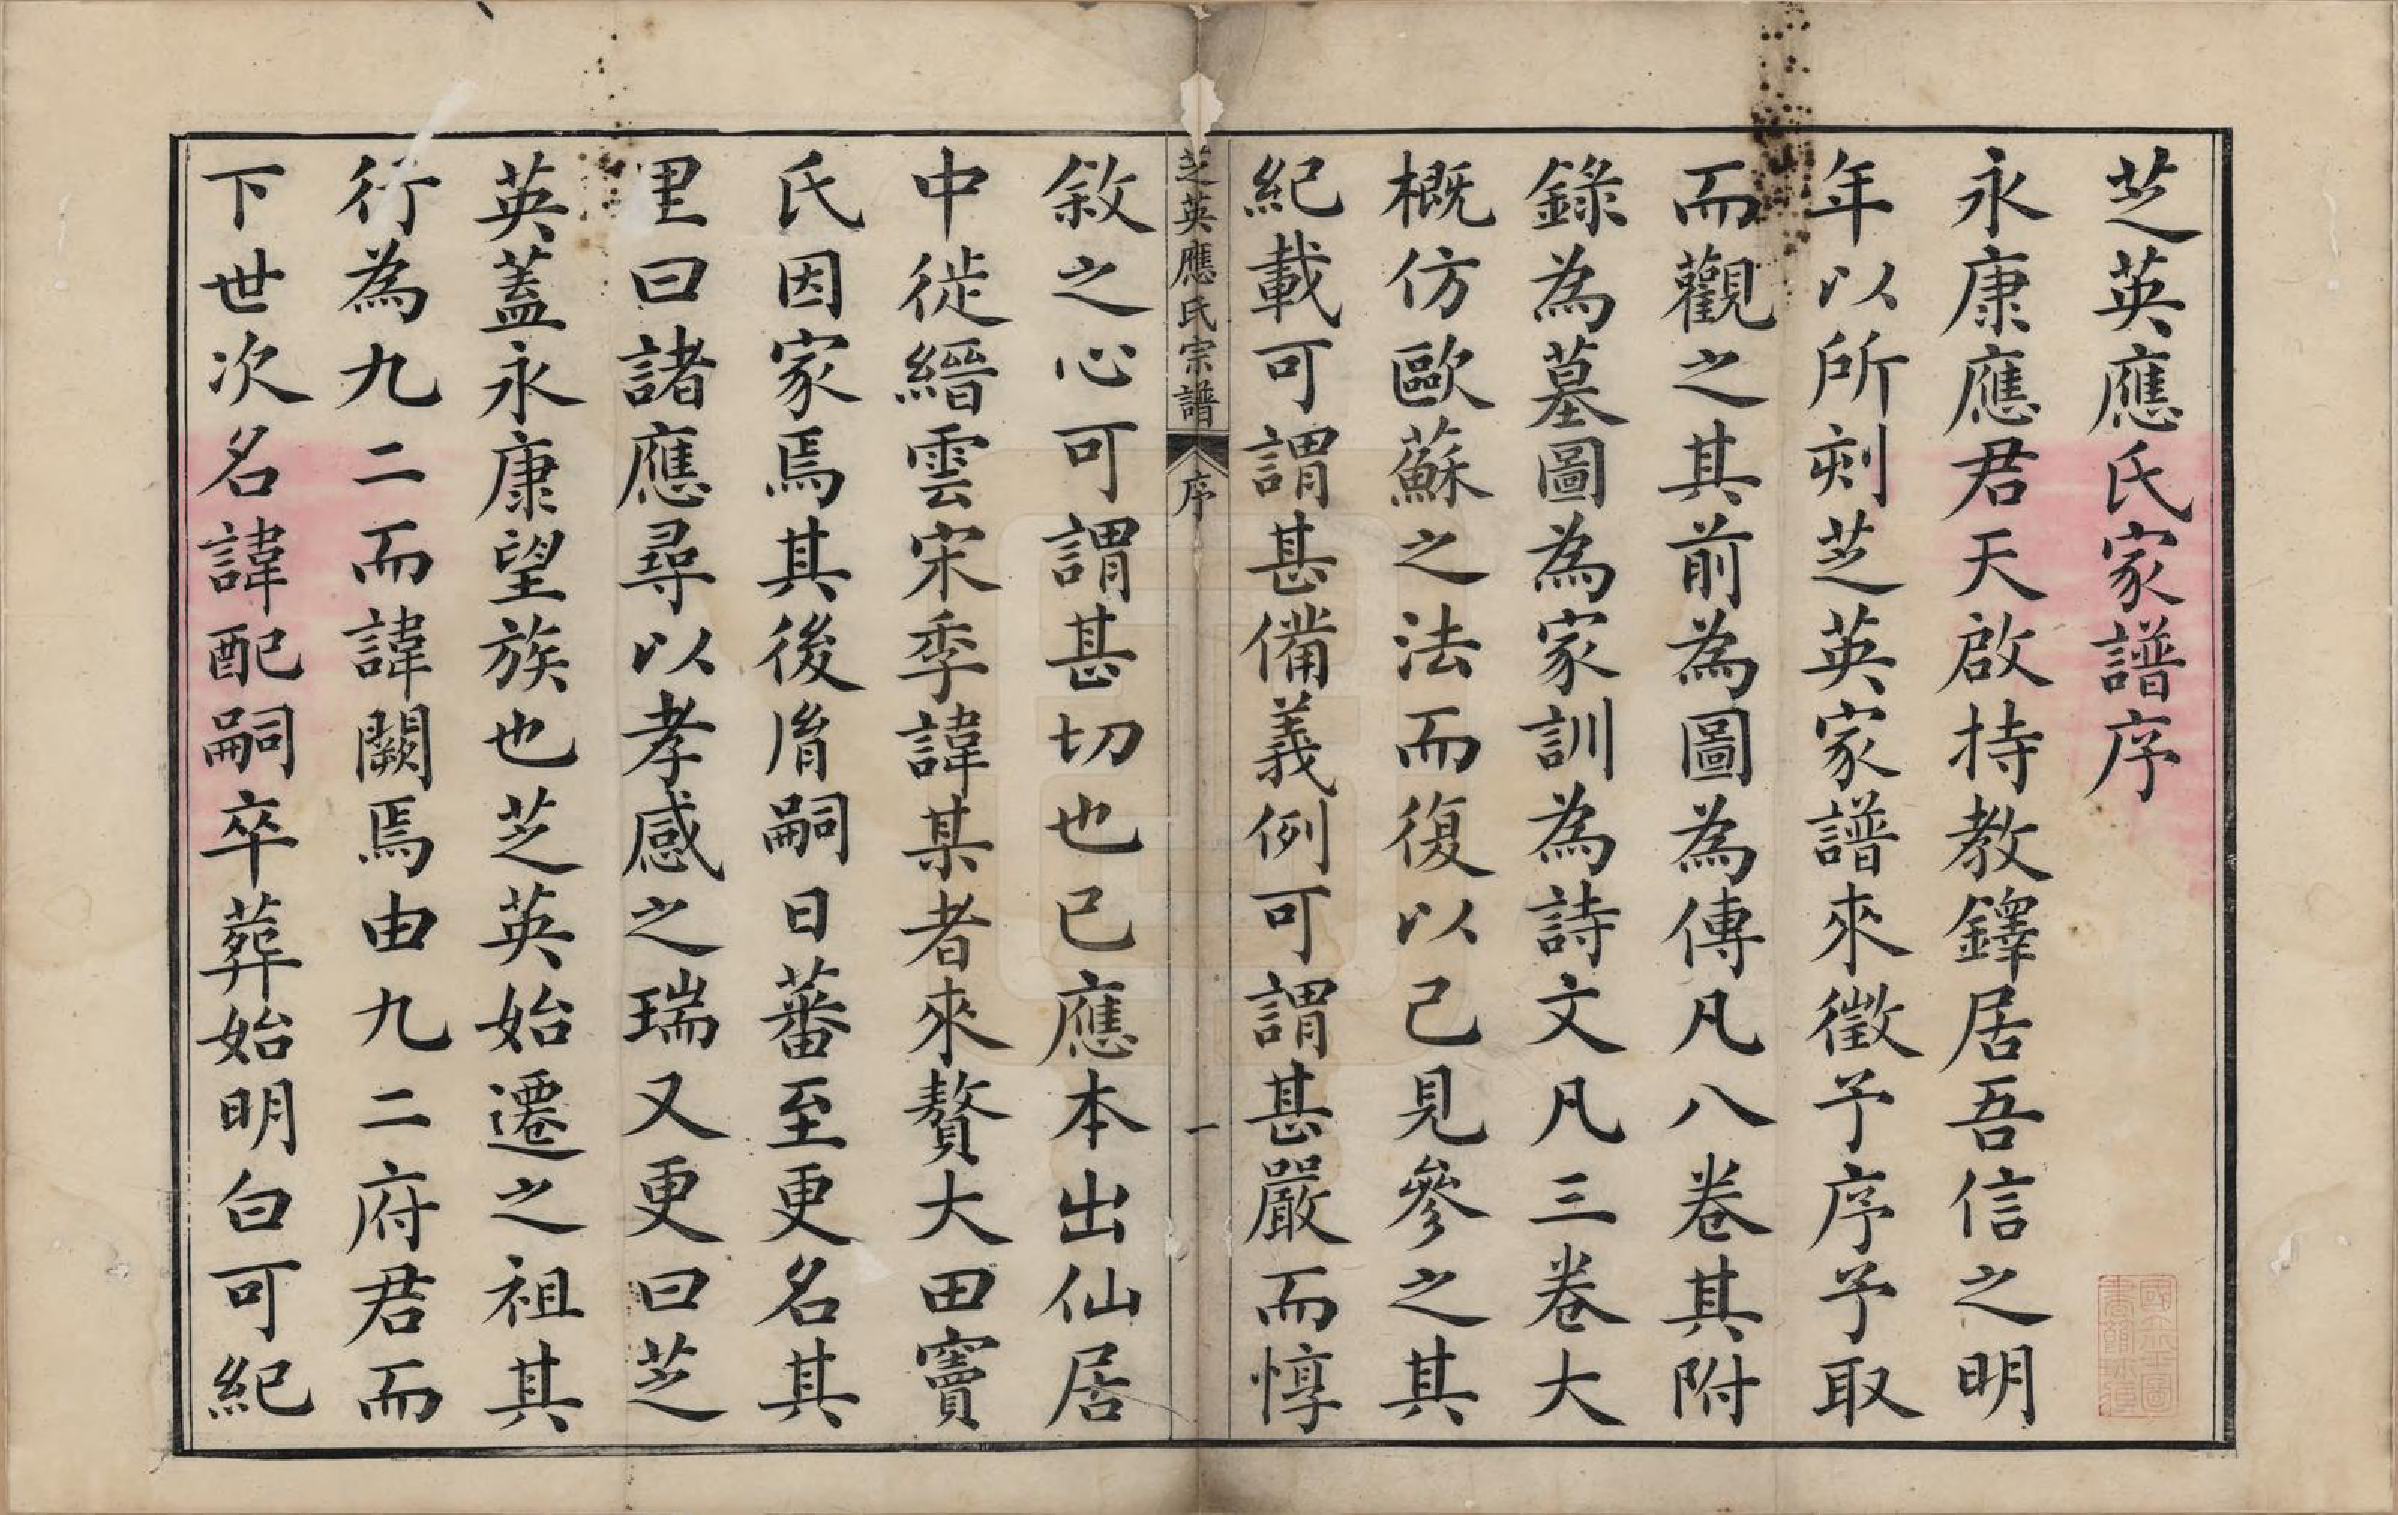 芝英應氏家譜序
永康應君天啟持教鐸居吾信之明
年以所刻芝英家譜來徵予序予取
而觀之其前為圖為傳凡八卷其附
錄為墓圖為家訓為詩文凡三卷大
概仿歐蘇之法而復以己見參之其
紀載可謂甚備義例可謂甚嚴而惇
芝英應氏宗譜 序 一
敘之心可謂甚切也已應本出仙居
中徙縉雲宋季諱某者來贅大田竇
氏因家焉其後胤嗣日蕃至更名其
里曰諸應尋以孝感之瑞又更曰芝
英蓋永康望族也芝英始遷之祖其
行為九二而諱闕焉由九二府君而
下世次名諱配嗣卒葬始明白可紀